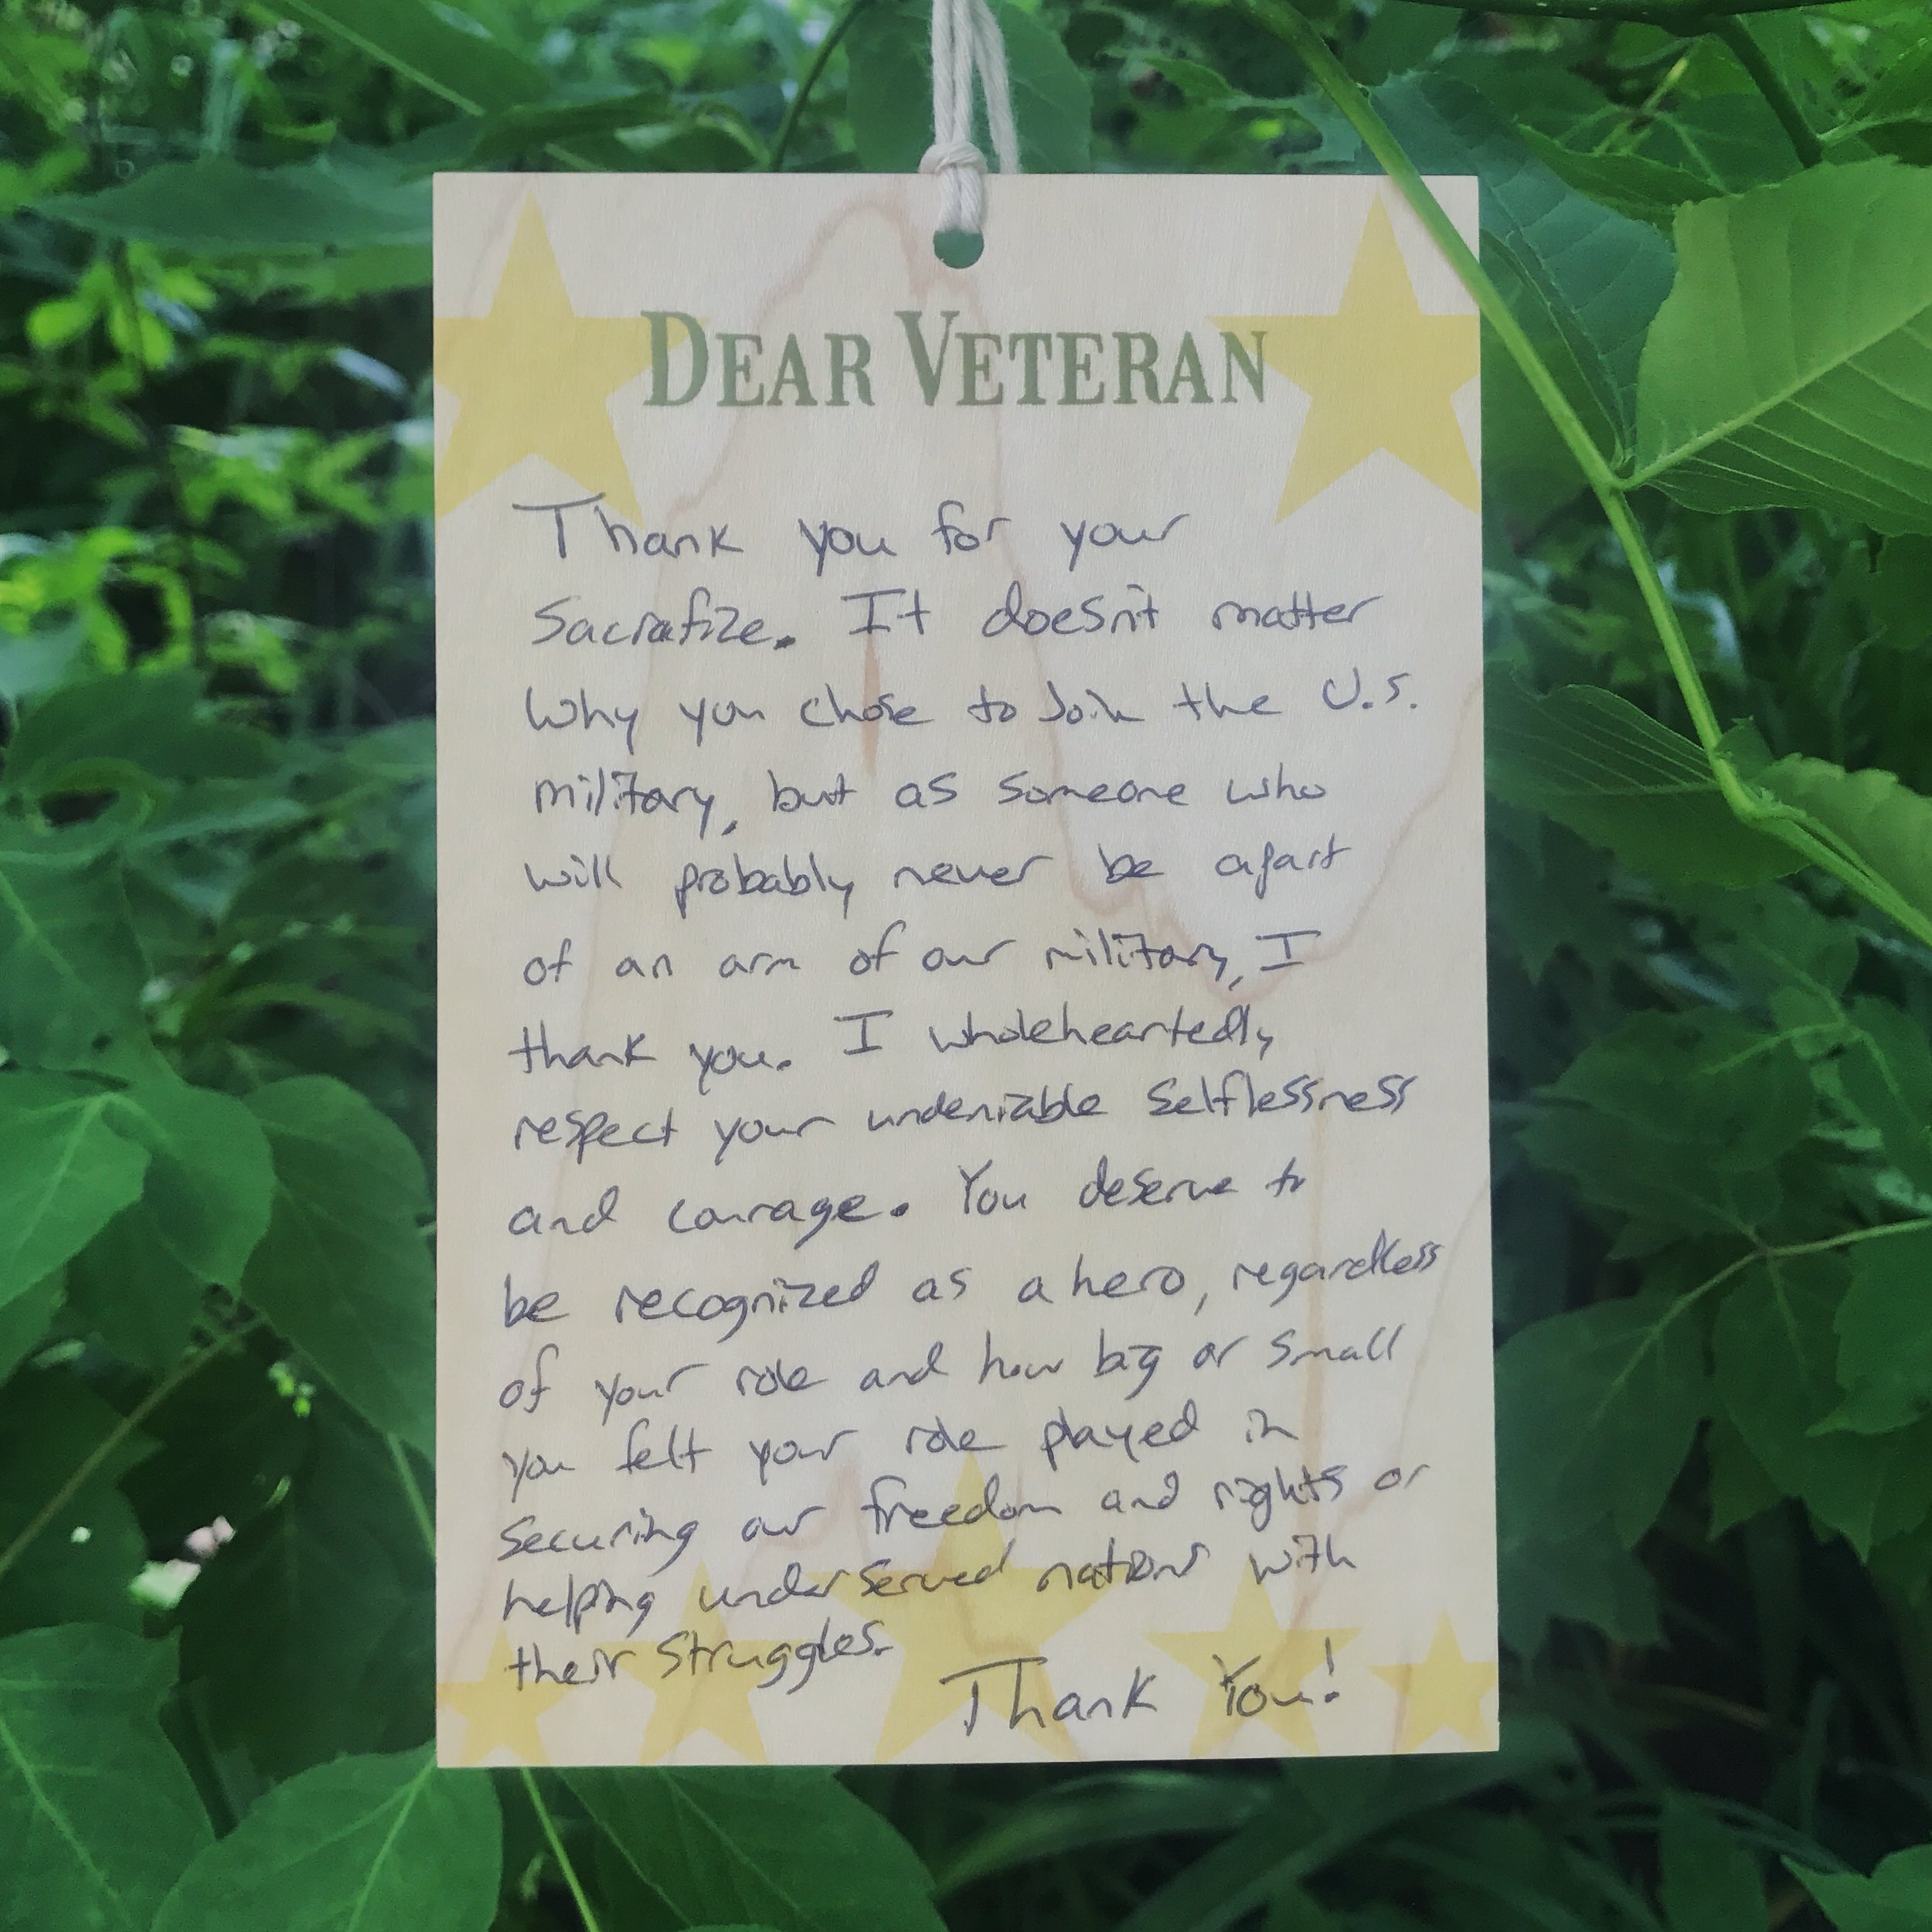 DEAR VETERAN
Thank you for your
Sacrafize. It doesn't matter
Why you chose to Join the U.S.
military, but as someone who
will probably never be apart
of an arm of our military, I
thank you. I wholeheartedly
respect your undeniable Selflessness
and courage. You deserve to
be recognized as a hero, regardless
of your role and how big or small
you felt your role played in
Securing our freedom and rights or
helping underserved nations with
their Struggles.
Thank You!